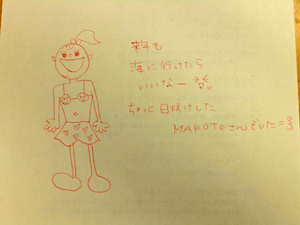 来年も
海に行けたら
いいなー
ちょっと日焼けした
MAKOTOさんでした=3